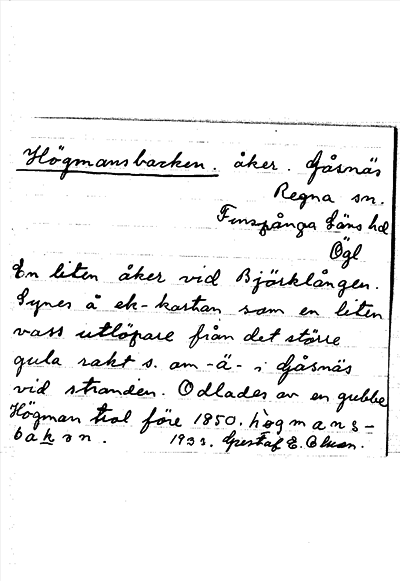 Högmansbacken. åker. Gåsnäs
Regna sn.
Finspånga Läns hd
Ögl
En liten åker vid Björklången.
Synes å ek-kartan som en liten
vass utlöpare från det större
gula rakt s. om -ä- i Gåsnäs
vid stranden. Odlades av en gubbe
Högman trol före 1850. hògmans-
bakən. 1933. Gustaf E. Olsson.